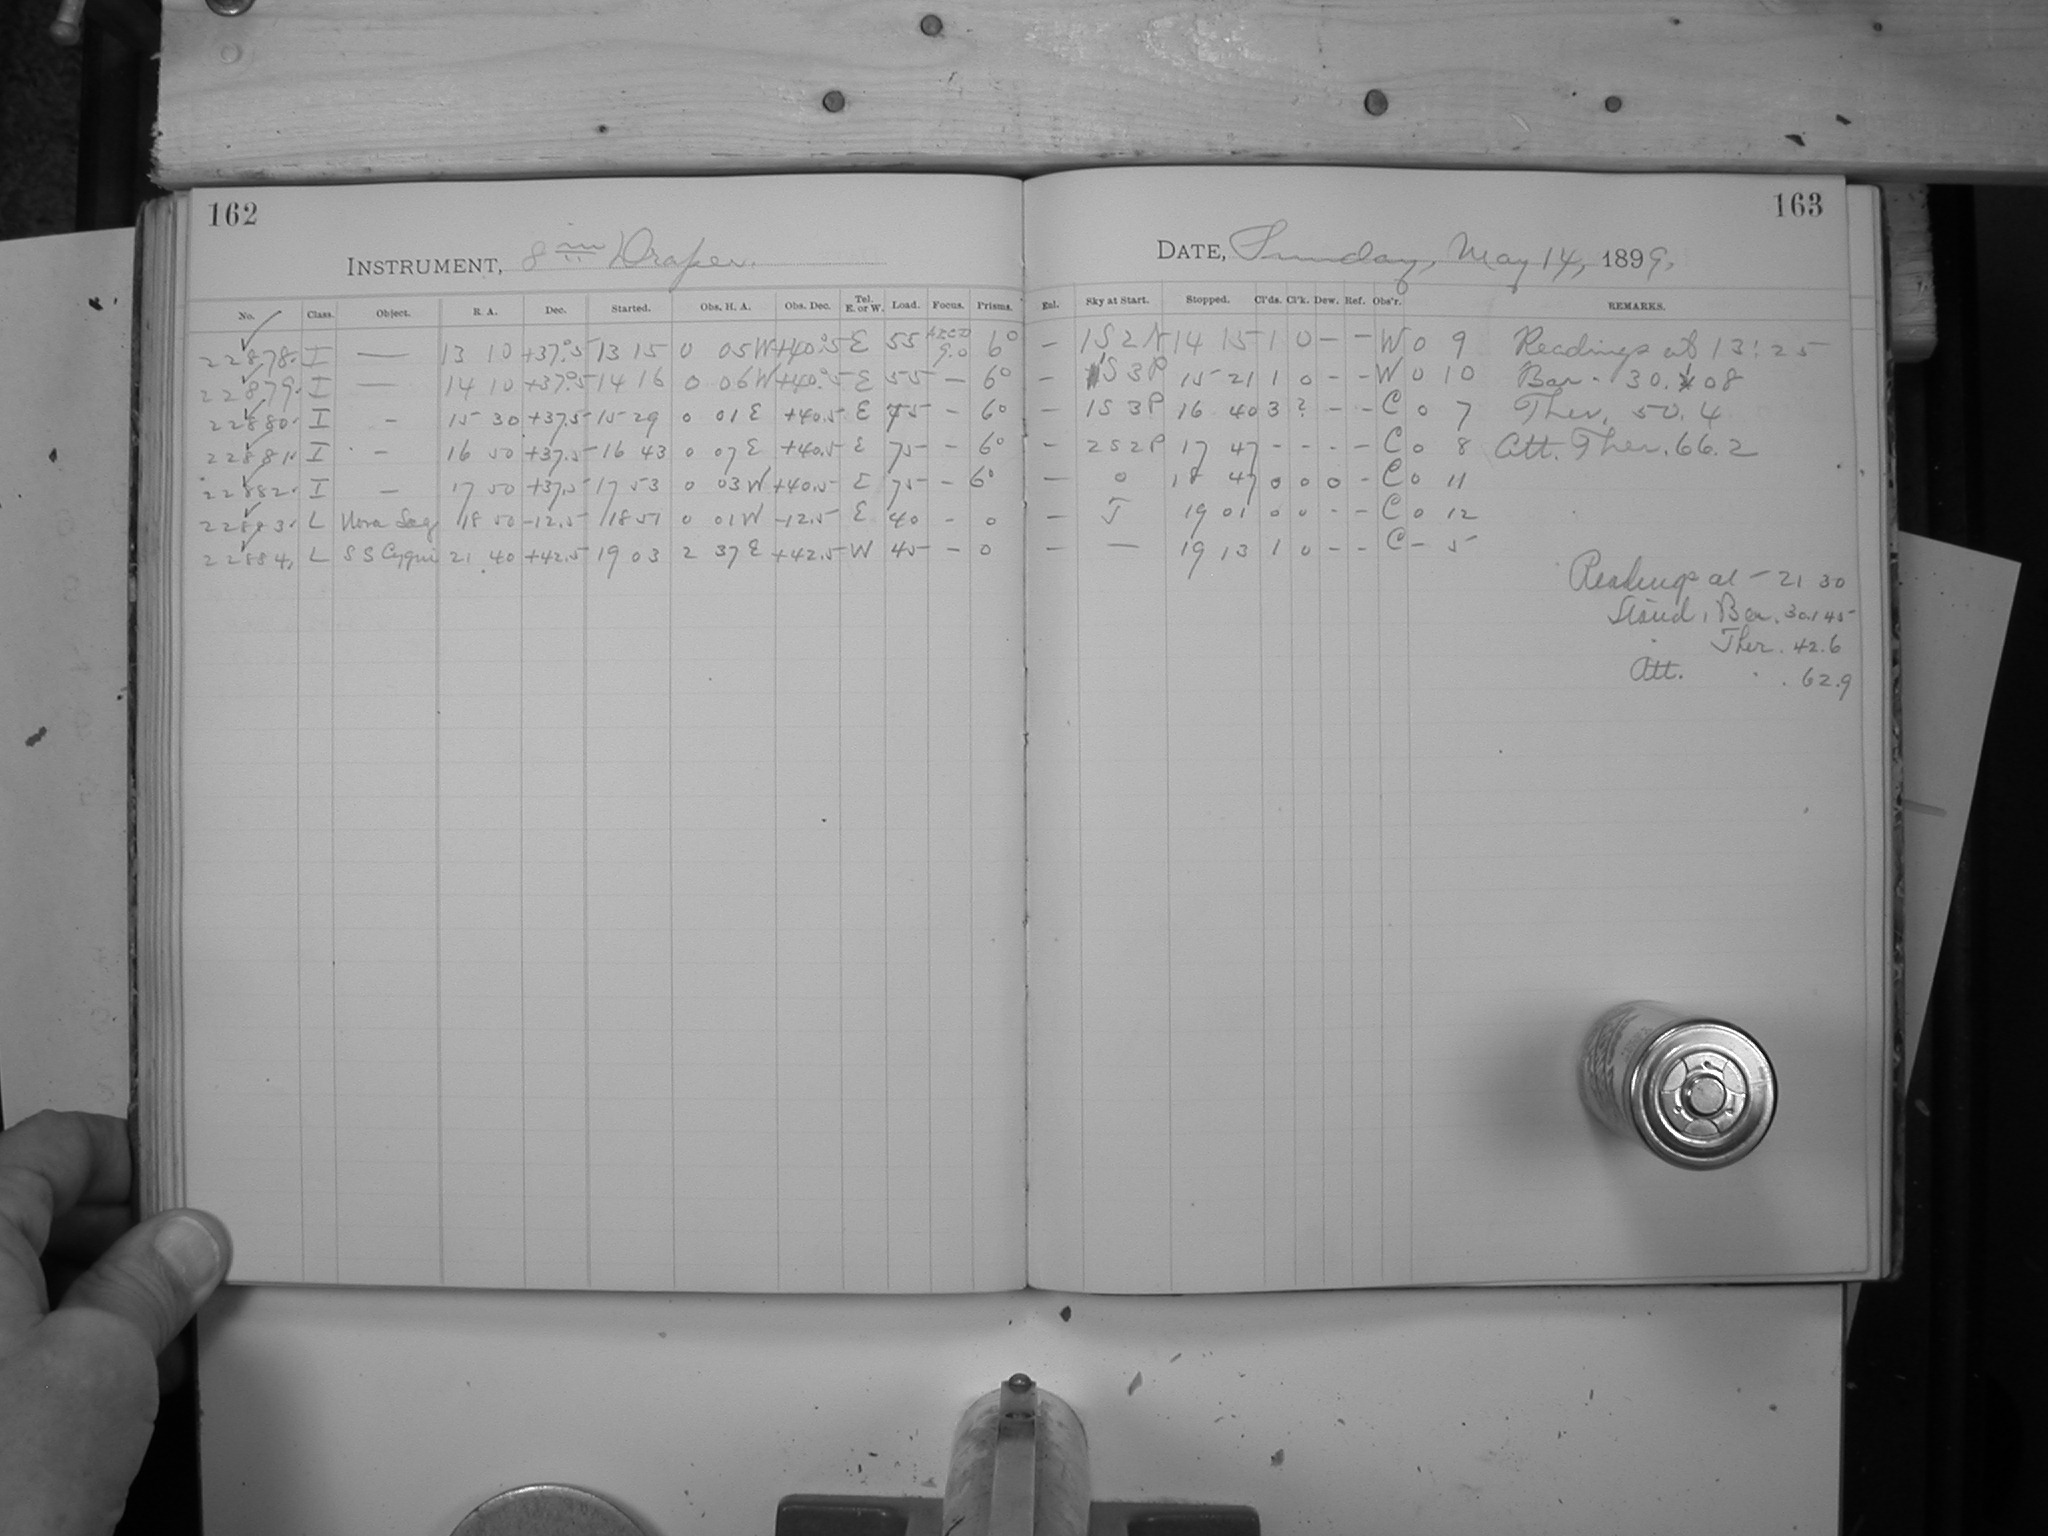 162
163
INSTRUMENT, 8 in Draper.
DATE, Sunday, May 14, 1899.
No. Class. Object. R. A. Dec. Started. Obs. H. A. Obs. Dec. Tel. E. or W. Load. Focus. Prisms. Enl. Sky at Start. Stopped. Cl'ds. Cl'k. Dew. Ref. Obs'r. REMARKS.
22878. I — 13 10 +37°.5 13 15 0 05 W +40°.5 E 55 9.0 6° — 1S2N 14 15 1 0 - - W 0 9 Readings at 13:25
22879. I — 14 10 +37°.5 14 16 0 06 W +40°.5 E 55 — 6° — S3P 15 21 1 0 - - W 0 10 Bar. 30.08
22880. I - 15 30 +37.5 15 29 0 01 E +40.5 E 75 - 6° — 1S3P 16 40 3 ? - - C 0 7 Ther. 50.4
22881. I - 16 50 +37.5 16 43 0 07 E +40.5 E 75 - 6° — 2S2P 17 47 - - - - C 0 8 Att. Ther. 66.2
22882. I - 17 50 +37.5 17 53 0 03 W +40.5 E 75 - 6° — 0 18 47 0 0 0 - C 0 11
22883. L Nova Sag 18 50 -12.5 18 51 0 01 W -12.5 E 40 - 0 — J 19 01 0 0 - - C 0 12
22884. L SS Cygni 21 40 +42.5 19 03 2 37 E +42.5 W 45 - 0 — — 19 13 1 0 - - C - 5
Readings at - 21 30
Stand. Bar. 30.145
Ther. 42.6
Att. 62.9